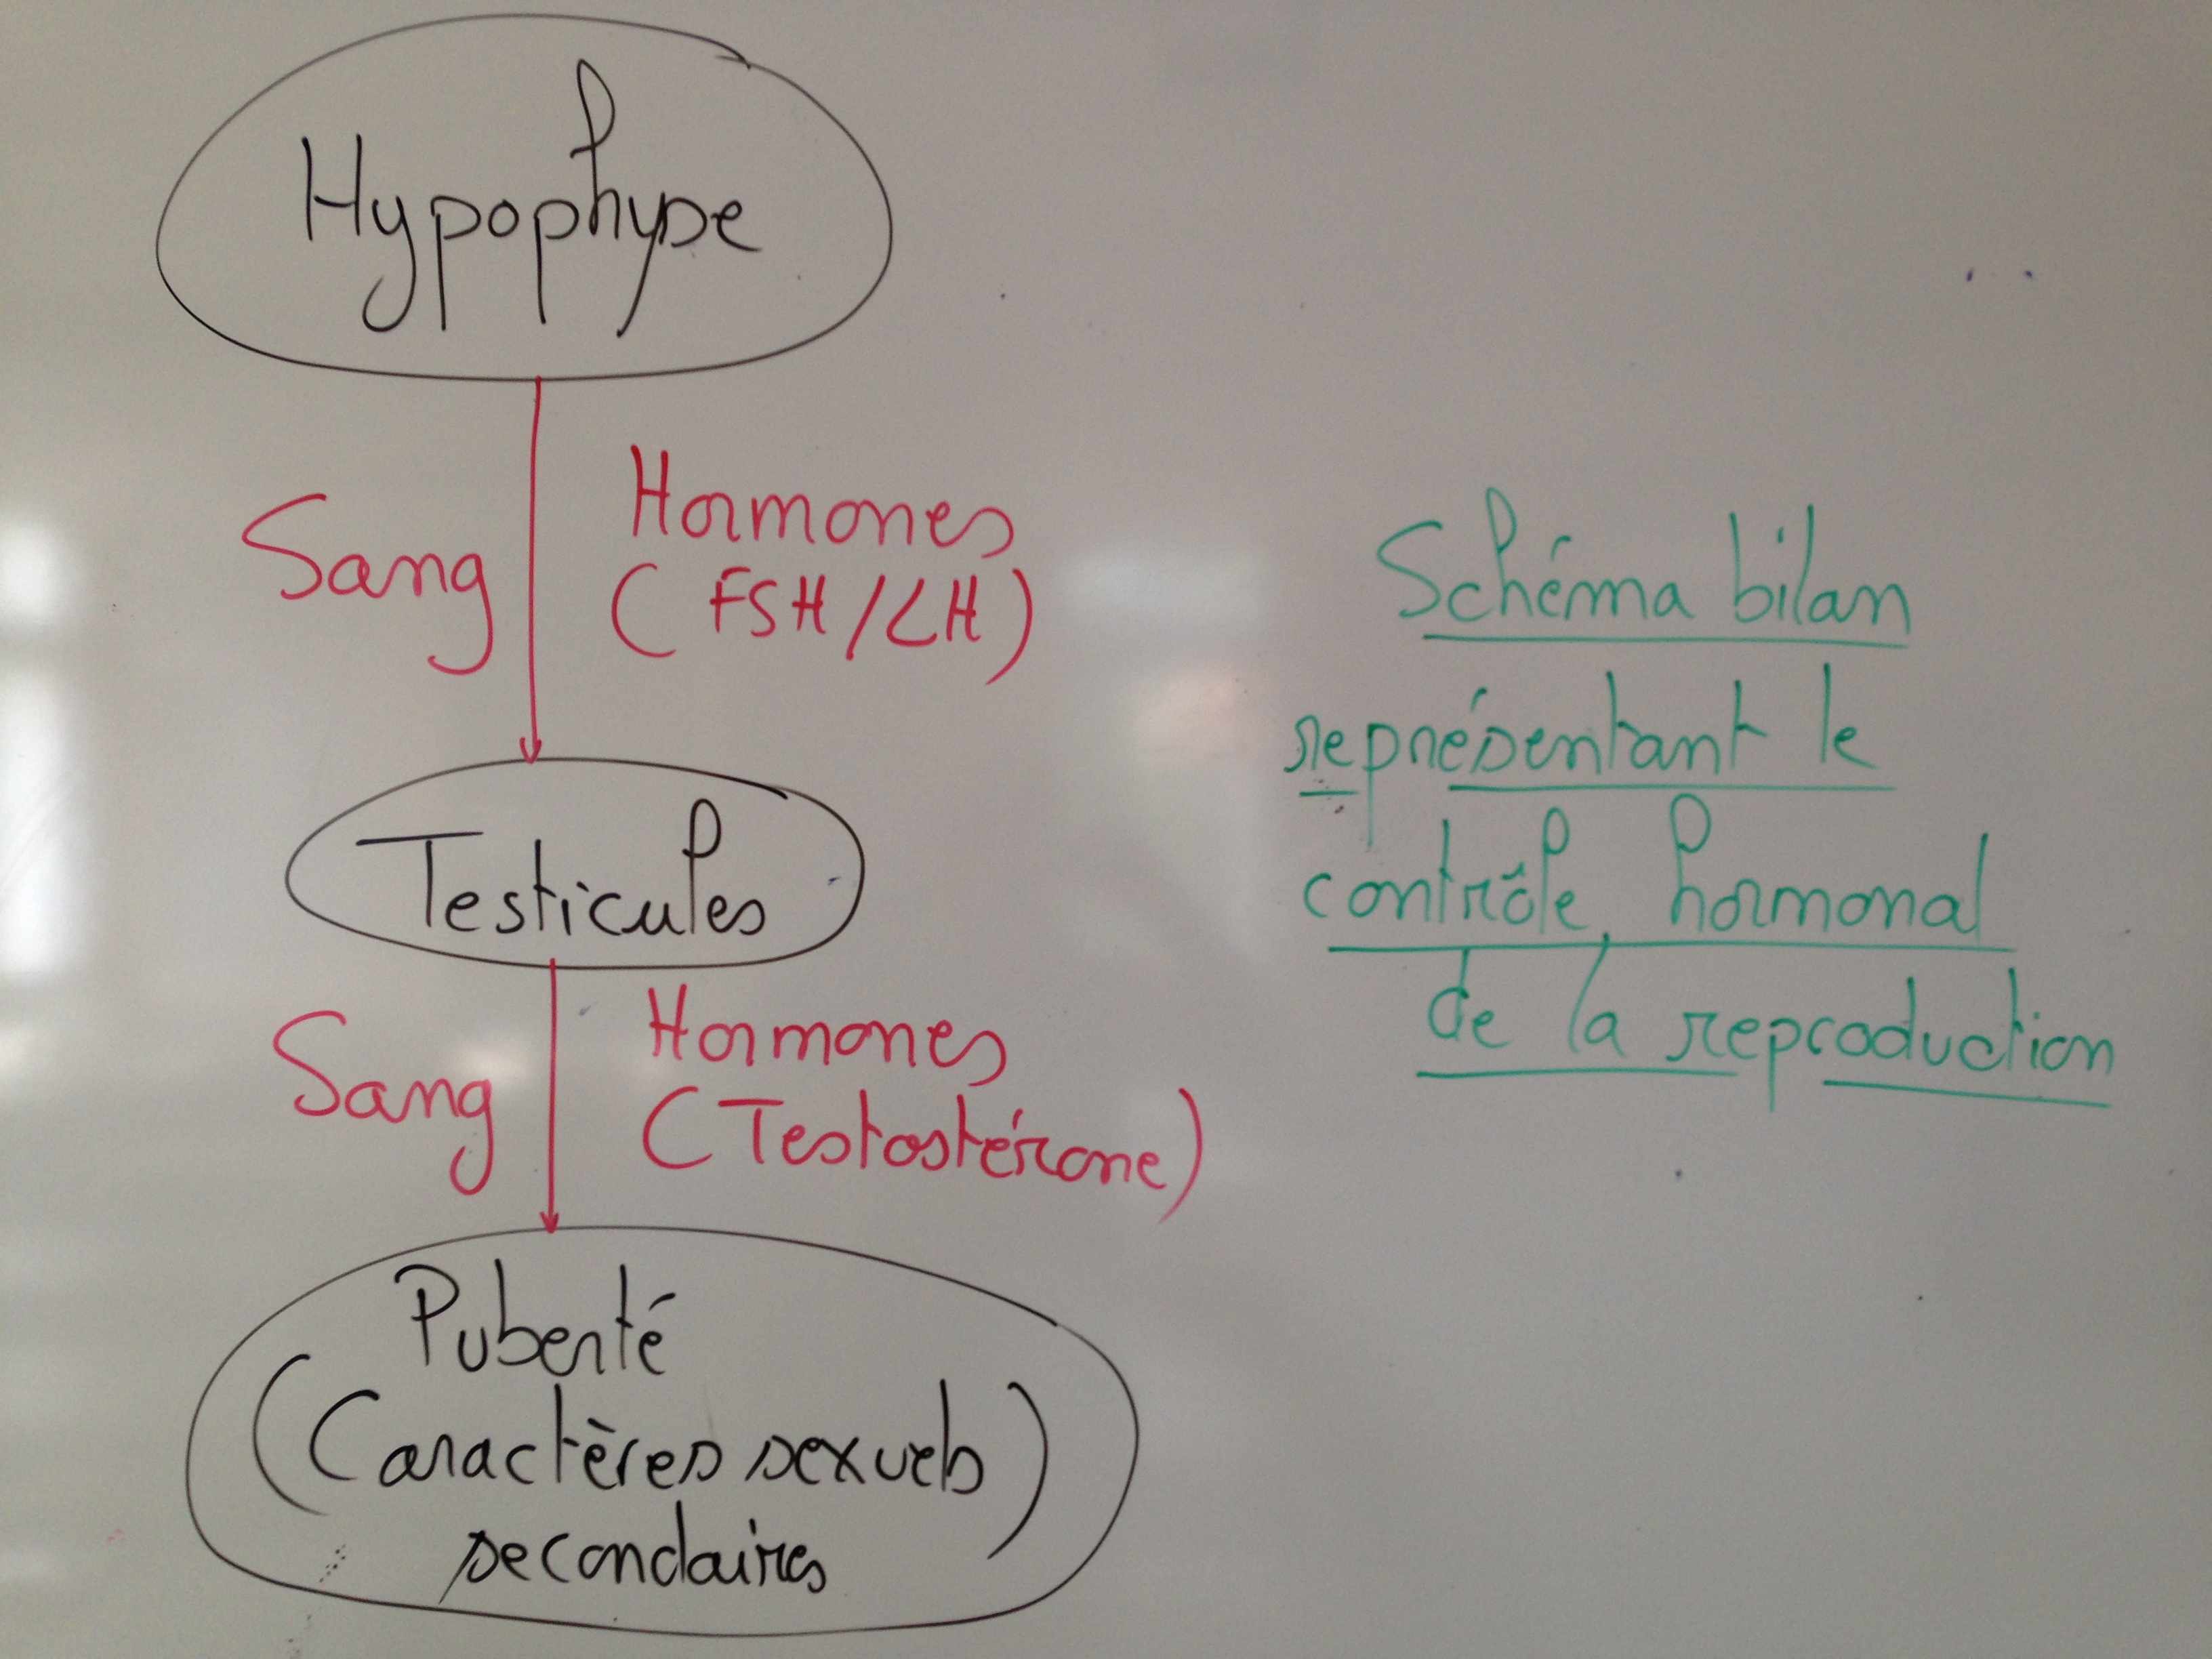 Hypophyse
Sang
Hormones
(FSH/LH)
Testicules
Sang
Hormones
(Testostérone)
Puberté
(Caractères sexuels
secondaires)
Schéma bilan
représentant le
contrôle hormonal
de la reproduction